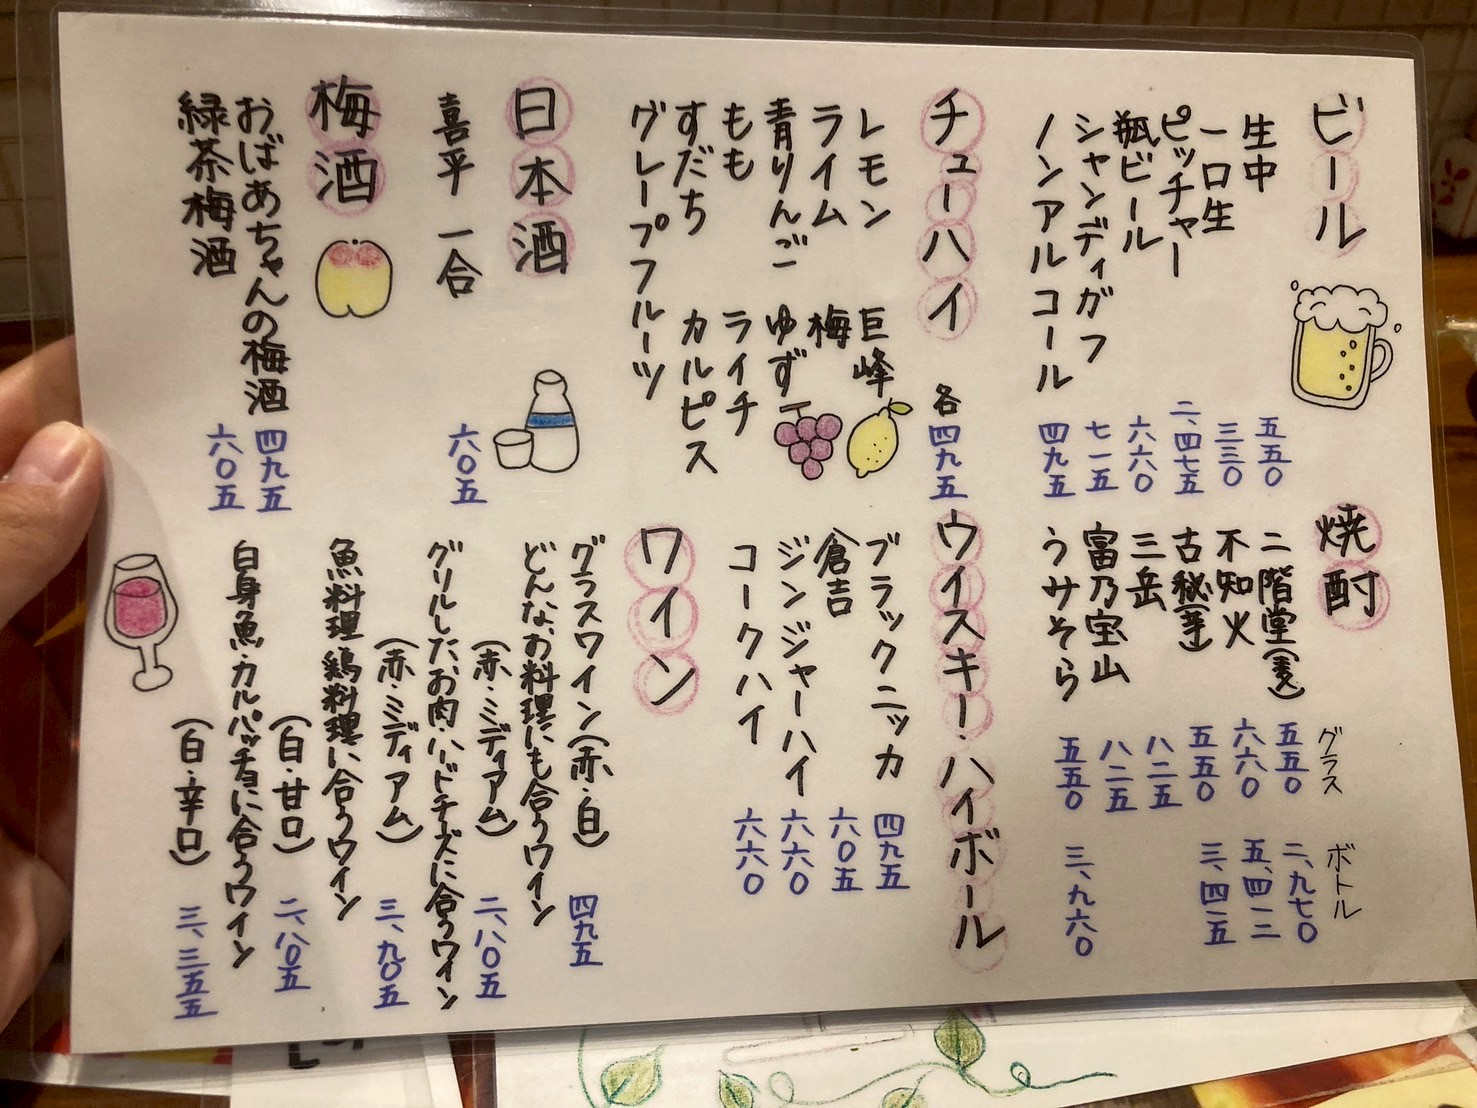 ビール
生中 五五〇
一口生 三三〇
ピッチャー 二、四七五
瓶ビール 六六〇
シャンディガフ 七一五
ノンアルコール 四九五
チューハイ 各四九五
レモン 巨峰
ライム 梅
青りんご ゆず
もも ライチ
すだち カルピス
グレープフルーツ
日本酒
喜平 一合 六〇五
梅酒
おばあちゃんの梅酒 四九五
緑茶梅酒 六〇五
焼酎 グラス ボトル
二階堂(麦) 五五〇 二、九七〇
不知火 六六〇 五、四一二
古秘(芋) 五五〇 三、四一五
三岳 八二五
富乃宝山 八二五
うサそら 五五〇 三、九六〇
ウイスキー・ハイボール
ブラックニッカ 四九五
倉吉 六〇五
ジンジャーハイ 六六〇
コークハイ 六六〇
ワイン
グラスワイン(赤・白) 四九五
どんなお料理にも合うワイン
(赤・ミディアム) 二、八〇五
グリルしたお肉・ハードチーズに合うワイン
(赤・ミディアム) 三、九〇五
魚料理 鶏料理に合うワイン
(白・甘口) 二、八〇五
白身魚・カルパッチョに合うワイン
(白・辛口) 三、三五五